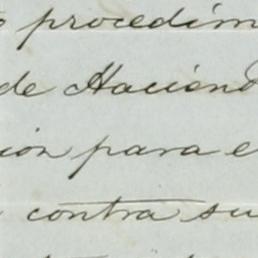 procedim
de Haciend
ion para e
contra su